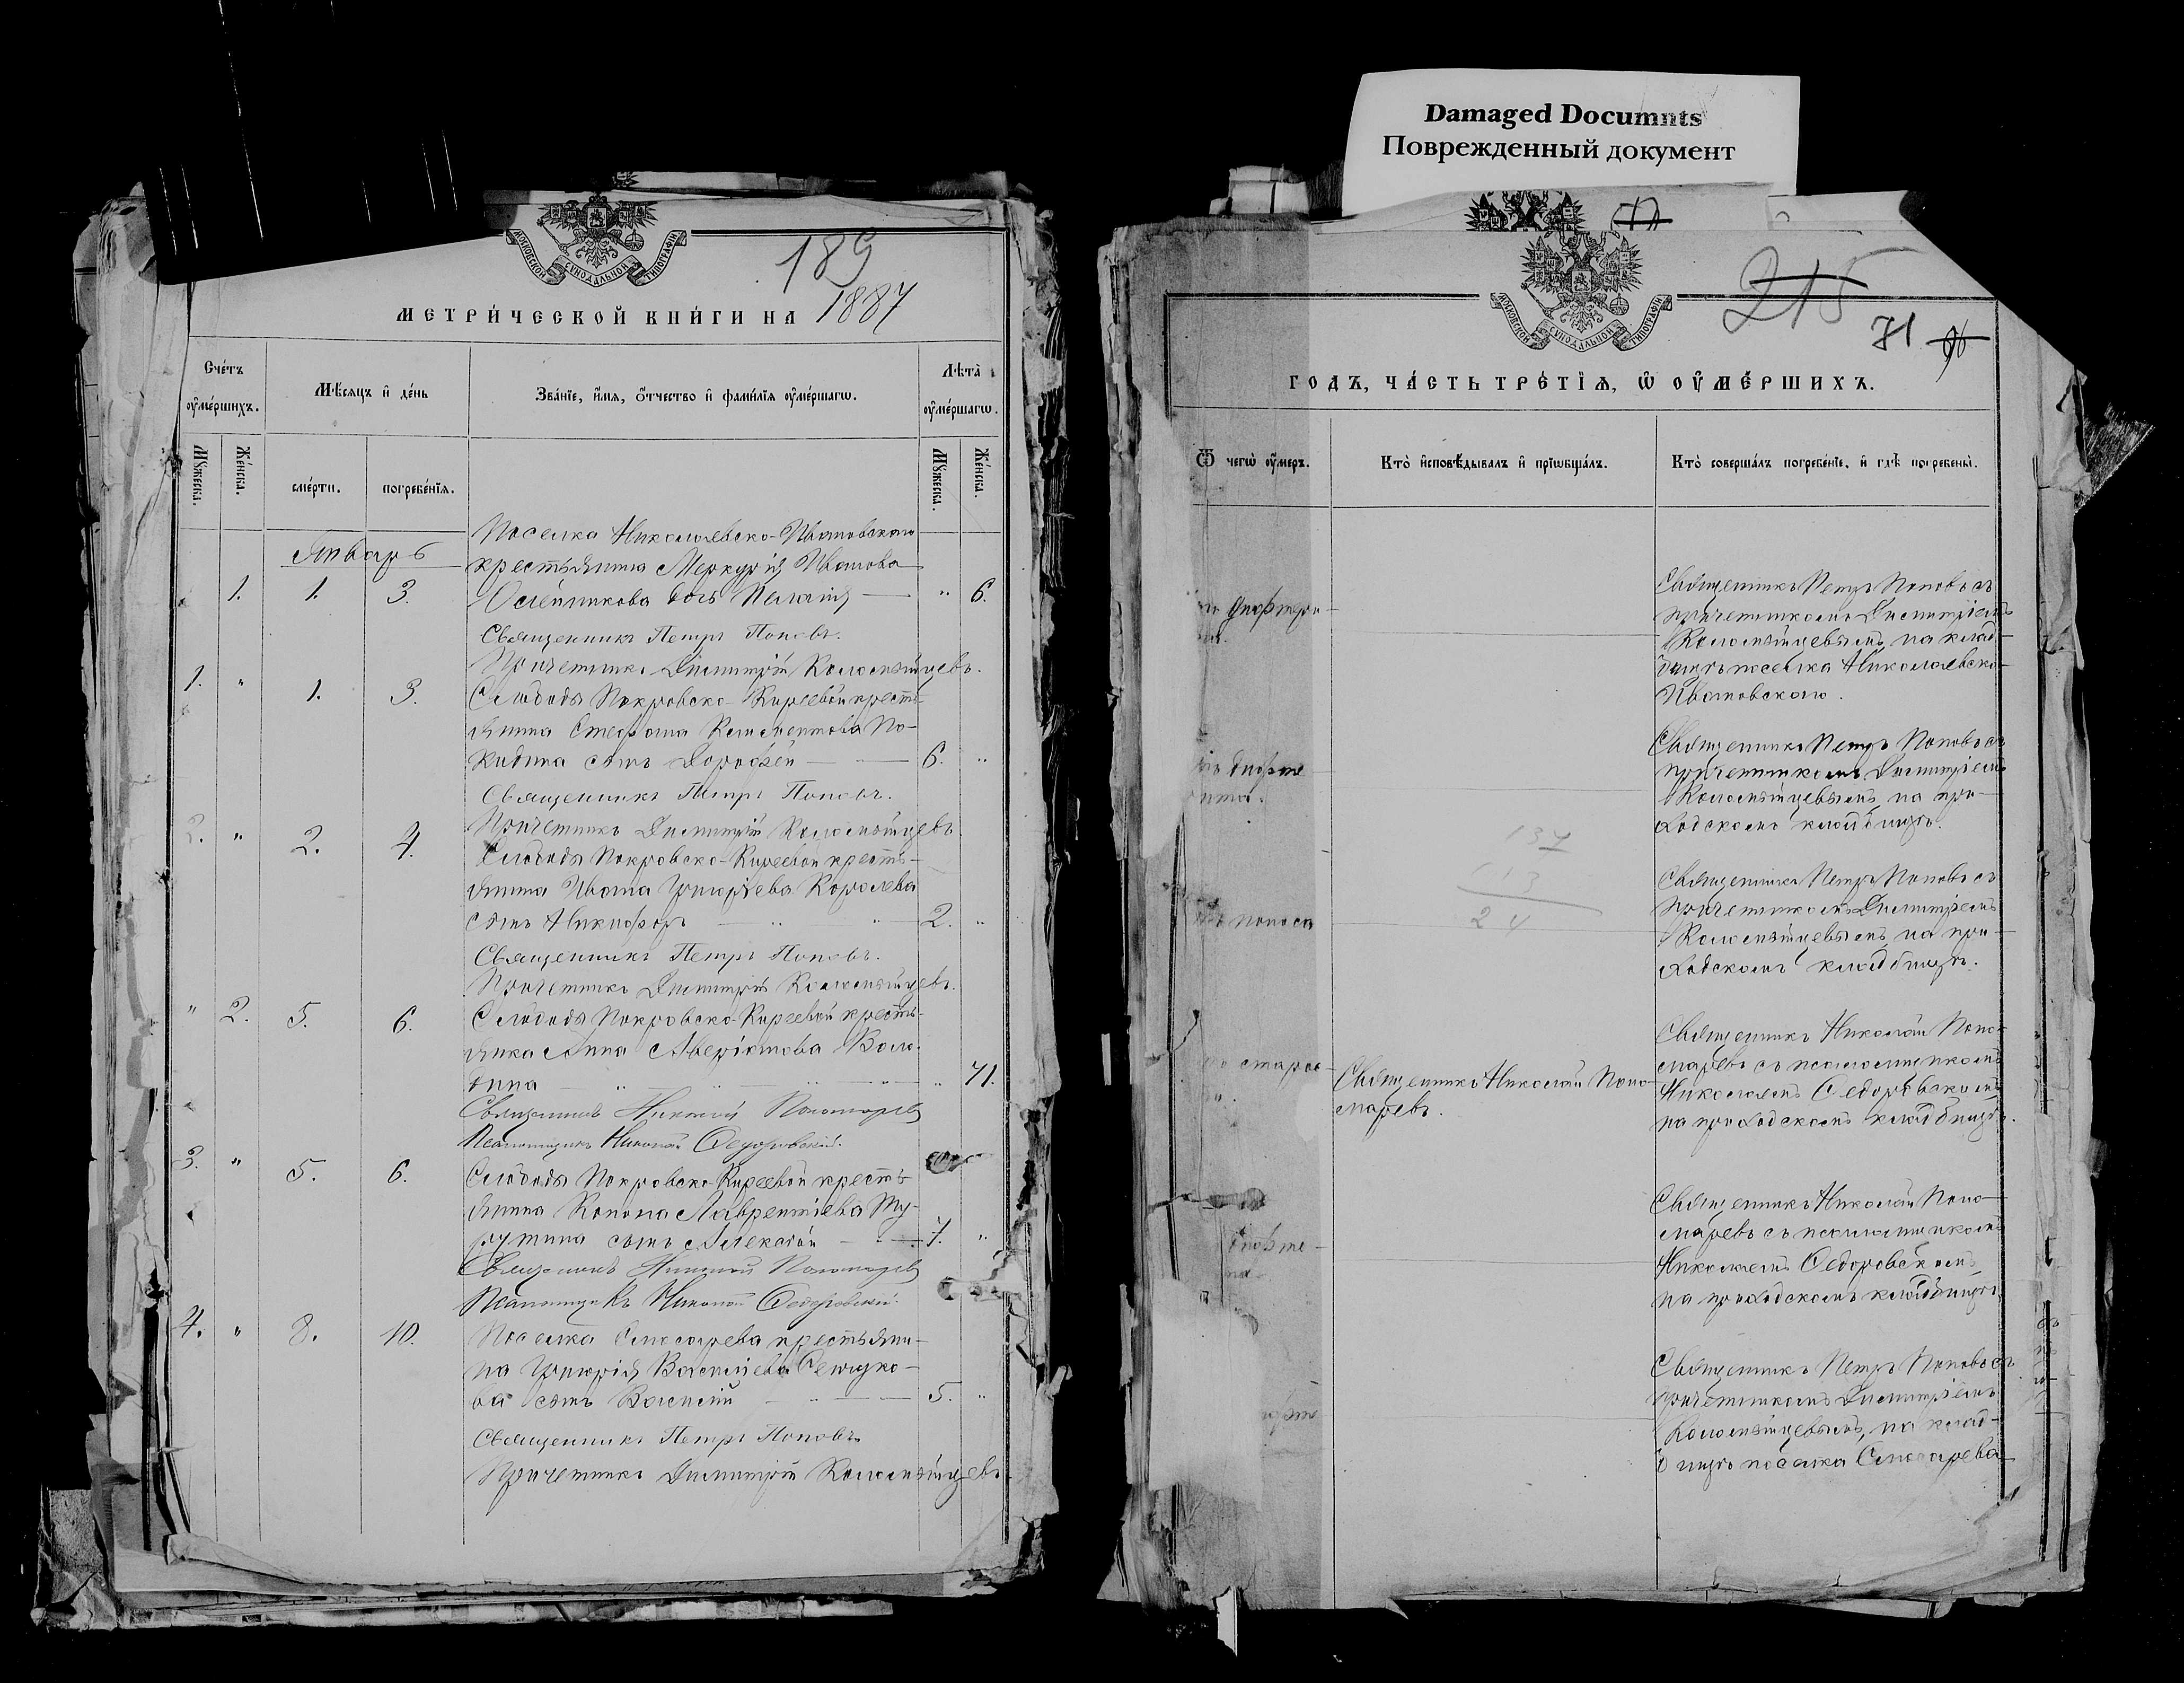 Damaged Documnts
Поврежденный документ
МОСКОВСКОЙ СѴНОДАЛЬНОЙ ТИПОГРАФІИ
189
МЕТРИ́ЧЕСКОЙ КНИ́ГИ НА 1887
Сче́тъ оу҆ме́ршихъ.
Мѣ́сяцъ и҆ де́нь
Зва́нїе, и҆́мя, ѻ҆́тчество и҆ фами́лїя оу҆ме́ршагѡ.
Лѣта̀ оу҆ме́ршагѡ.
Мꙋ́жеска.
Же́нска.
сме́рти.
погребе́нїя.
Мꙋ́жеска.
Же́нска.
Январь
Поселка Николаевско-Ивановскаго
крестьянина Меркурія Иванова
1. 1. 3. Олейникова дочь Пелагія — " 6.
Священникъ Петръ Поповъ.
Причетникъ Димитрій Коломѣйцевъ.
1. " 1. 3. Слободы Покровско-Киреевой кресть-
янина Стефана Климентова По-
кидина сынъ Дорофей — 6. "
Священникъ Петръ Поповъ.
Причетникъ Димитрій Коломѣйцевъ
2. " 2. 4. Слободы Покровско-Киреевой кресть-
янина Ивана Григорьева Королева
сынъ Никифоръ — 2. "
Священникъ Петръ Поповъ.
Причетникъ Димитрій Коломѣйцевъ.
" 2. 5. 6. Слободы Покровско-Киреевой кресть-
янка Анна Аверіанова Воло-
дина — " 71.
Священникъ Николай Пономаревъ
Псаломщикъ Николай Ѳедоровскій.
3. " 5. 6. Слободы Покровско-Киреевой кресть-
янина Конона Лаврентіева Ту-
рутина сынъ Алексѣй — 7. "
Священникъ Николай Пономаревъ
Псаломщикъ Николай Ѳедоровскій.
4. " 8. 10. Поселка Слюсарева крестьяни-
на Григорія Васильева
ва сынъ Василій — 5. "
Священникъ Петръ Поповъ
Причетникъ Димитрій Коломѣйцевъ.
МОСКОВСКОЙ СѴНОДАЛЬНОЙ ТИПОГРАФІИ
215
71
ГОДЪ, ЧА́СТЬ ТРЕ́ТЇЯ, Ѡ҆ ОУ҆МЕ́РШИХЪ.
Ѿ чегѡ̀ оу҆́меръ.
Кто̀ и҆сповѣ́дывалъ и҆ прїѡбща́лъ.
Кто̀ соверша́лъ погребе́нїе, и҆ гдѣ̀ погребены̀.
Священникъ Петръ Поповъ съ
причетникомъ Димитріемъ
Коломѣйцевымъ, на клад-
бищѣ поселка Николаевско-
Ивановскаго.
Священникъ Петръ Поповъ съ
причетникомъ Димитріемъ
Коломѣйцевымъ, на при-
ходскомъ кладбищѣ.
137
113
24
поноса
Священникъ Петръ Поповъ съ
причетникомъ Димитріемъ
Коломѣйцевымъ, на при-
ходскомъ кладбищѣ.
старос-
Священникъ Николай Поно-
маревъ.
Священникъ Николай Поно-
маревъ съ псаломщикомъ
Николаемъ Ѳедоровскимъ
на приходскомъ кладбищѣ.
Священникъ Николай Поно-
маревъ съ псаломщикомъ
Николаемъ Ѳедоровскимъ
на приходскомъ кладбищѣ.
Священникъ Петръ Поповъ съ
причетникомъ Димитріемъ
Коломѣйцевымъ, на клад-
бищѣ поселка Слюсарева